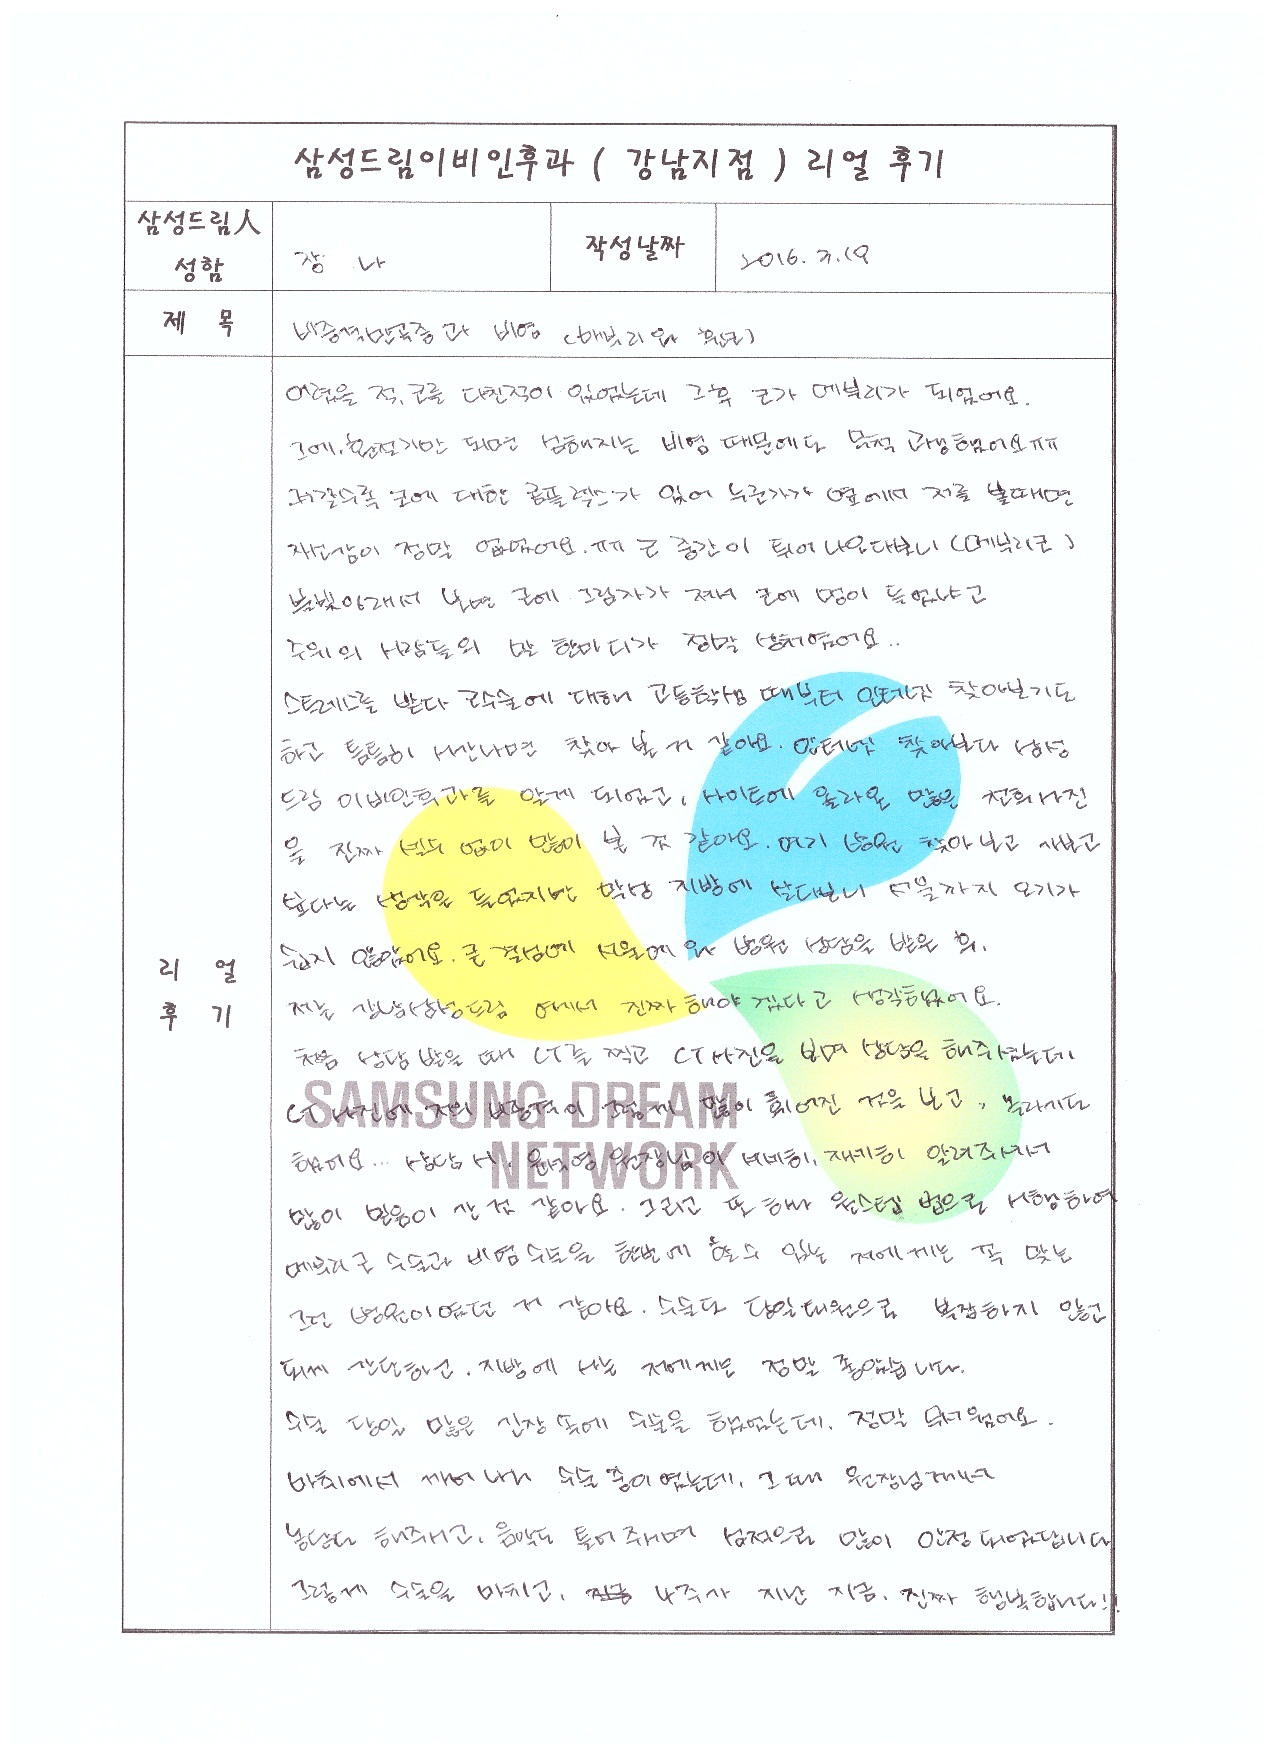 삼성드림이비인후과 ( 강남지점 ) 리얼 후기
삼성드림人 성함
장 나
작성날짜
2016. 7. 19
제 목
비중격만곡증과 비염 (매부리와 휜코)
리 얼 후 기
어렸을 적, 코를 다친적이 있었는데 그 후 코가 메부리가 되었어요.
그에, 환절기만 되면 심해지는 비염 때문에도 무척 고생했어요ㅠㅠ
커갈수록 코에 대한 콤플렉스가 있어 누군가가 옆에서 저를 볼때면
자신감이 정말 없었어요.ㅠㅠ 코 중간이 튀어나오다보니 (메부리코)
불빛아래서 보면 코에 그림자가 져서 코에 멍이 들었냐고
주위의 사람들의 말 한마디가 정말 상처였어요..
스트레스를 받다 코수술에 대해 고등학생 때부터 인터넷 찾아보기도
하고 틈틈히 시간나면 찾아 본 거 같아요. 인터넷 찾아보다 삼성
드림 이비인후과를 알게 되었고, 사이트에 올라온 많은 전후사진
을 진짜 셀수 없이 많이 본 것 같아요. 여기 병원 찾아보고 가보고
싶다는 생각은 들었지만 막상 지방에 살다보니 서울까지 오기가
쉽지 않았어요. 큰 결심에 서울에 와 병원 상담을 받은 후,
저는 강남삼성드림 에서 진짜 해야 겠다고 생각했어요.
처음 상담 받을 때 CT를 찍고 CT사진을 보며 상담을 해주셨는데
CT 사진에 저의 비중격이 그렇게 많이 휘어진 것을 보고, 놀라기도
했어요... 상담 시, 원장님이 세세히, 자세히 알려주셔서
많이 믿음이 간 것 같아요. 그리고 또 하나 원스텝 법으로 시행하여
메부리코 수술과 비염수술을 한번에 할 수 있는 저에게는 꼭 맞는
그런 병원이었던 거 같아요. 수술도 당일퇴원으로 복잡하지 않고
되게 간단하고, 지방에 사는 저에게는 정말 좋았습니다.
수술 당일 많은 긴장 속에 수술을 했었는데, 정말 무서웠어요.
마취에서 깨어나니 수술 중이었는데, 그 때 원장님께서
농담도 해주시고, 음악도 틀어주시며 심적으로 많이 안정되었답니다
그렇게 수술을 마치고, 4주차 지난 지금, 진짜 행복합니다!!
SAMSUNG DREAM
NETWORK